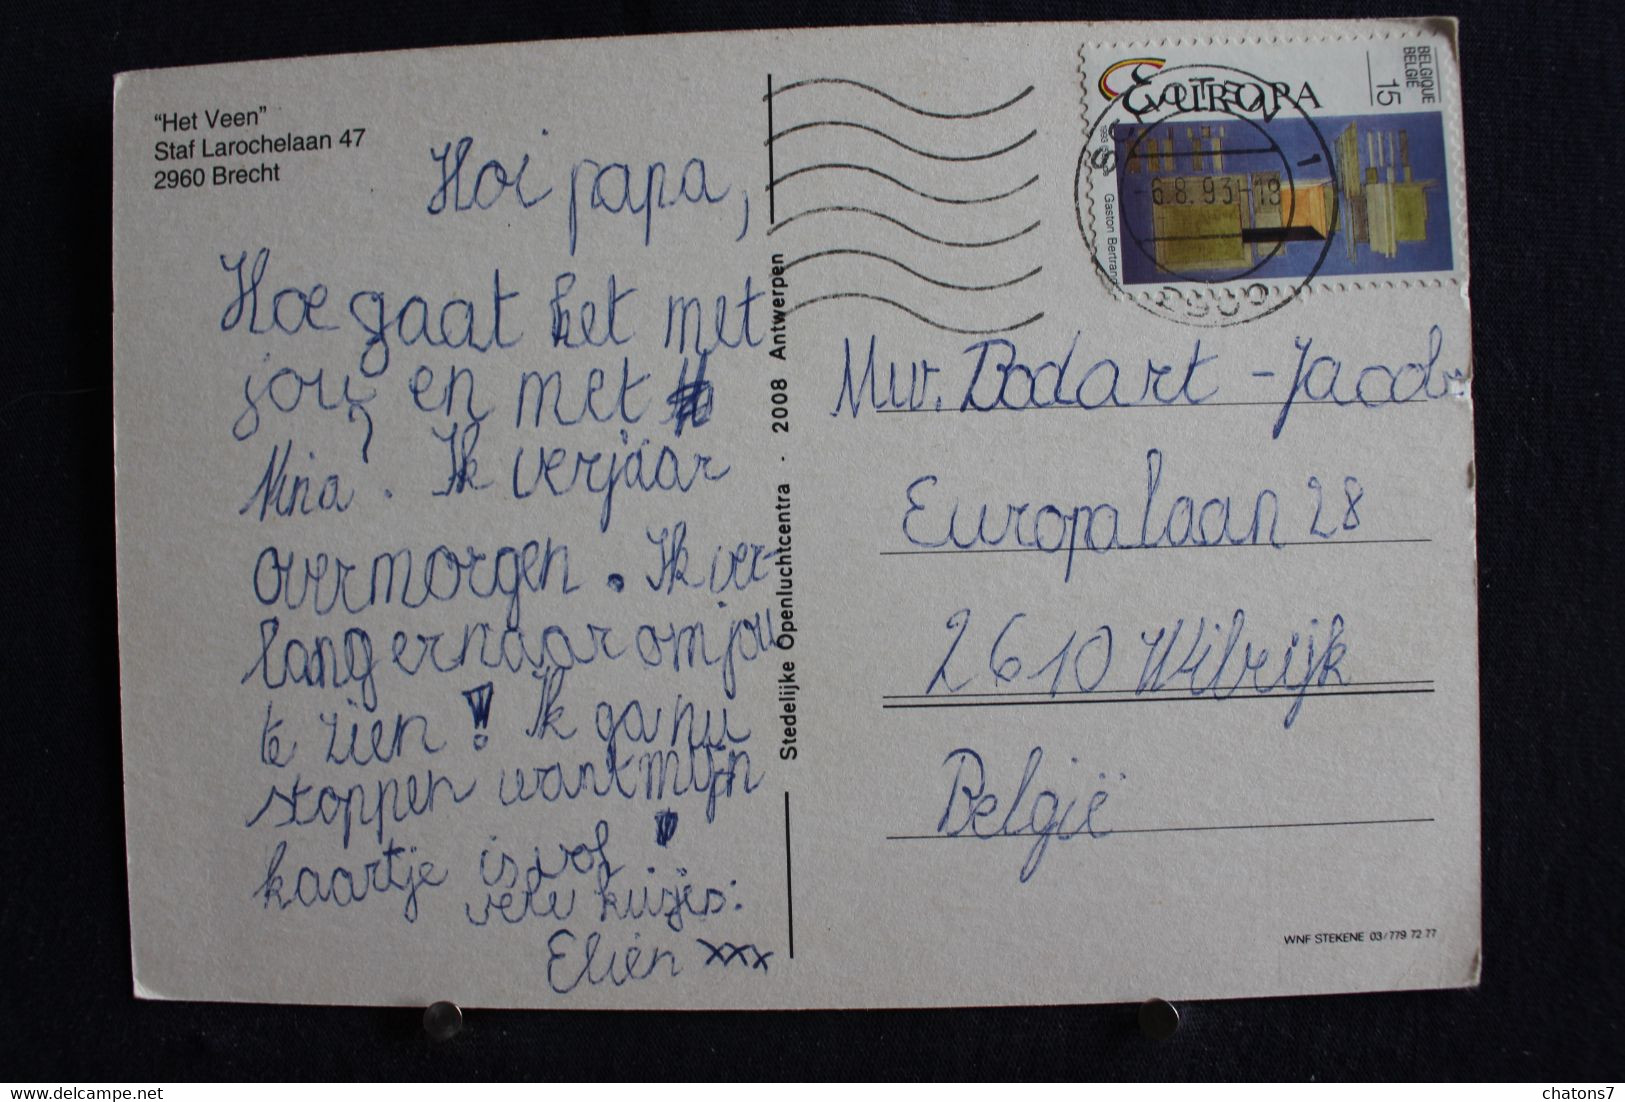 "Het Veen"
Staf Larochelaan 47
2960 Brecht
Hoi papa,
Hoe gaat het met
jou en met
Nina? . Ik verjaar
overmorgen. Ik ver-
lang er naar om jou
te zien! Ik ga nu
stoppen want mijn
kaartje is vol!
vele kusjes:
Elien xxx
Stedelijke Openluchtcentra · 2008 Antwerpen
BELGIQUE
BELGIË
15
EUROPA
Gaston Bertrand
-6.8.93-18
Mw. Bodart - Jacob
Europalaan 28
2610 Wilrijk
België
WNF STEKENE 03/779 72 77
chatons7